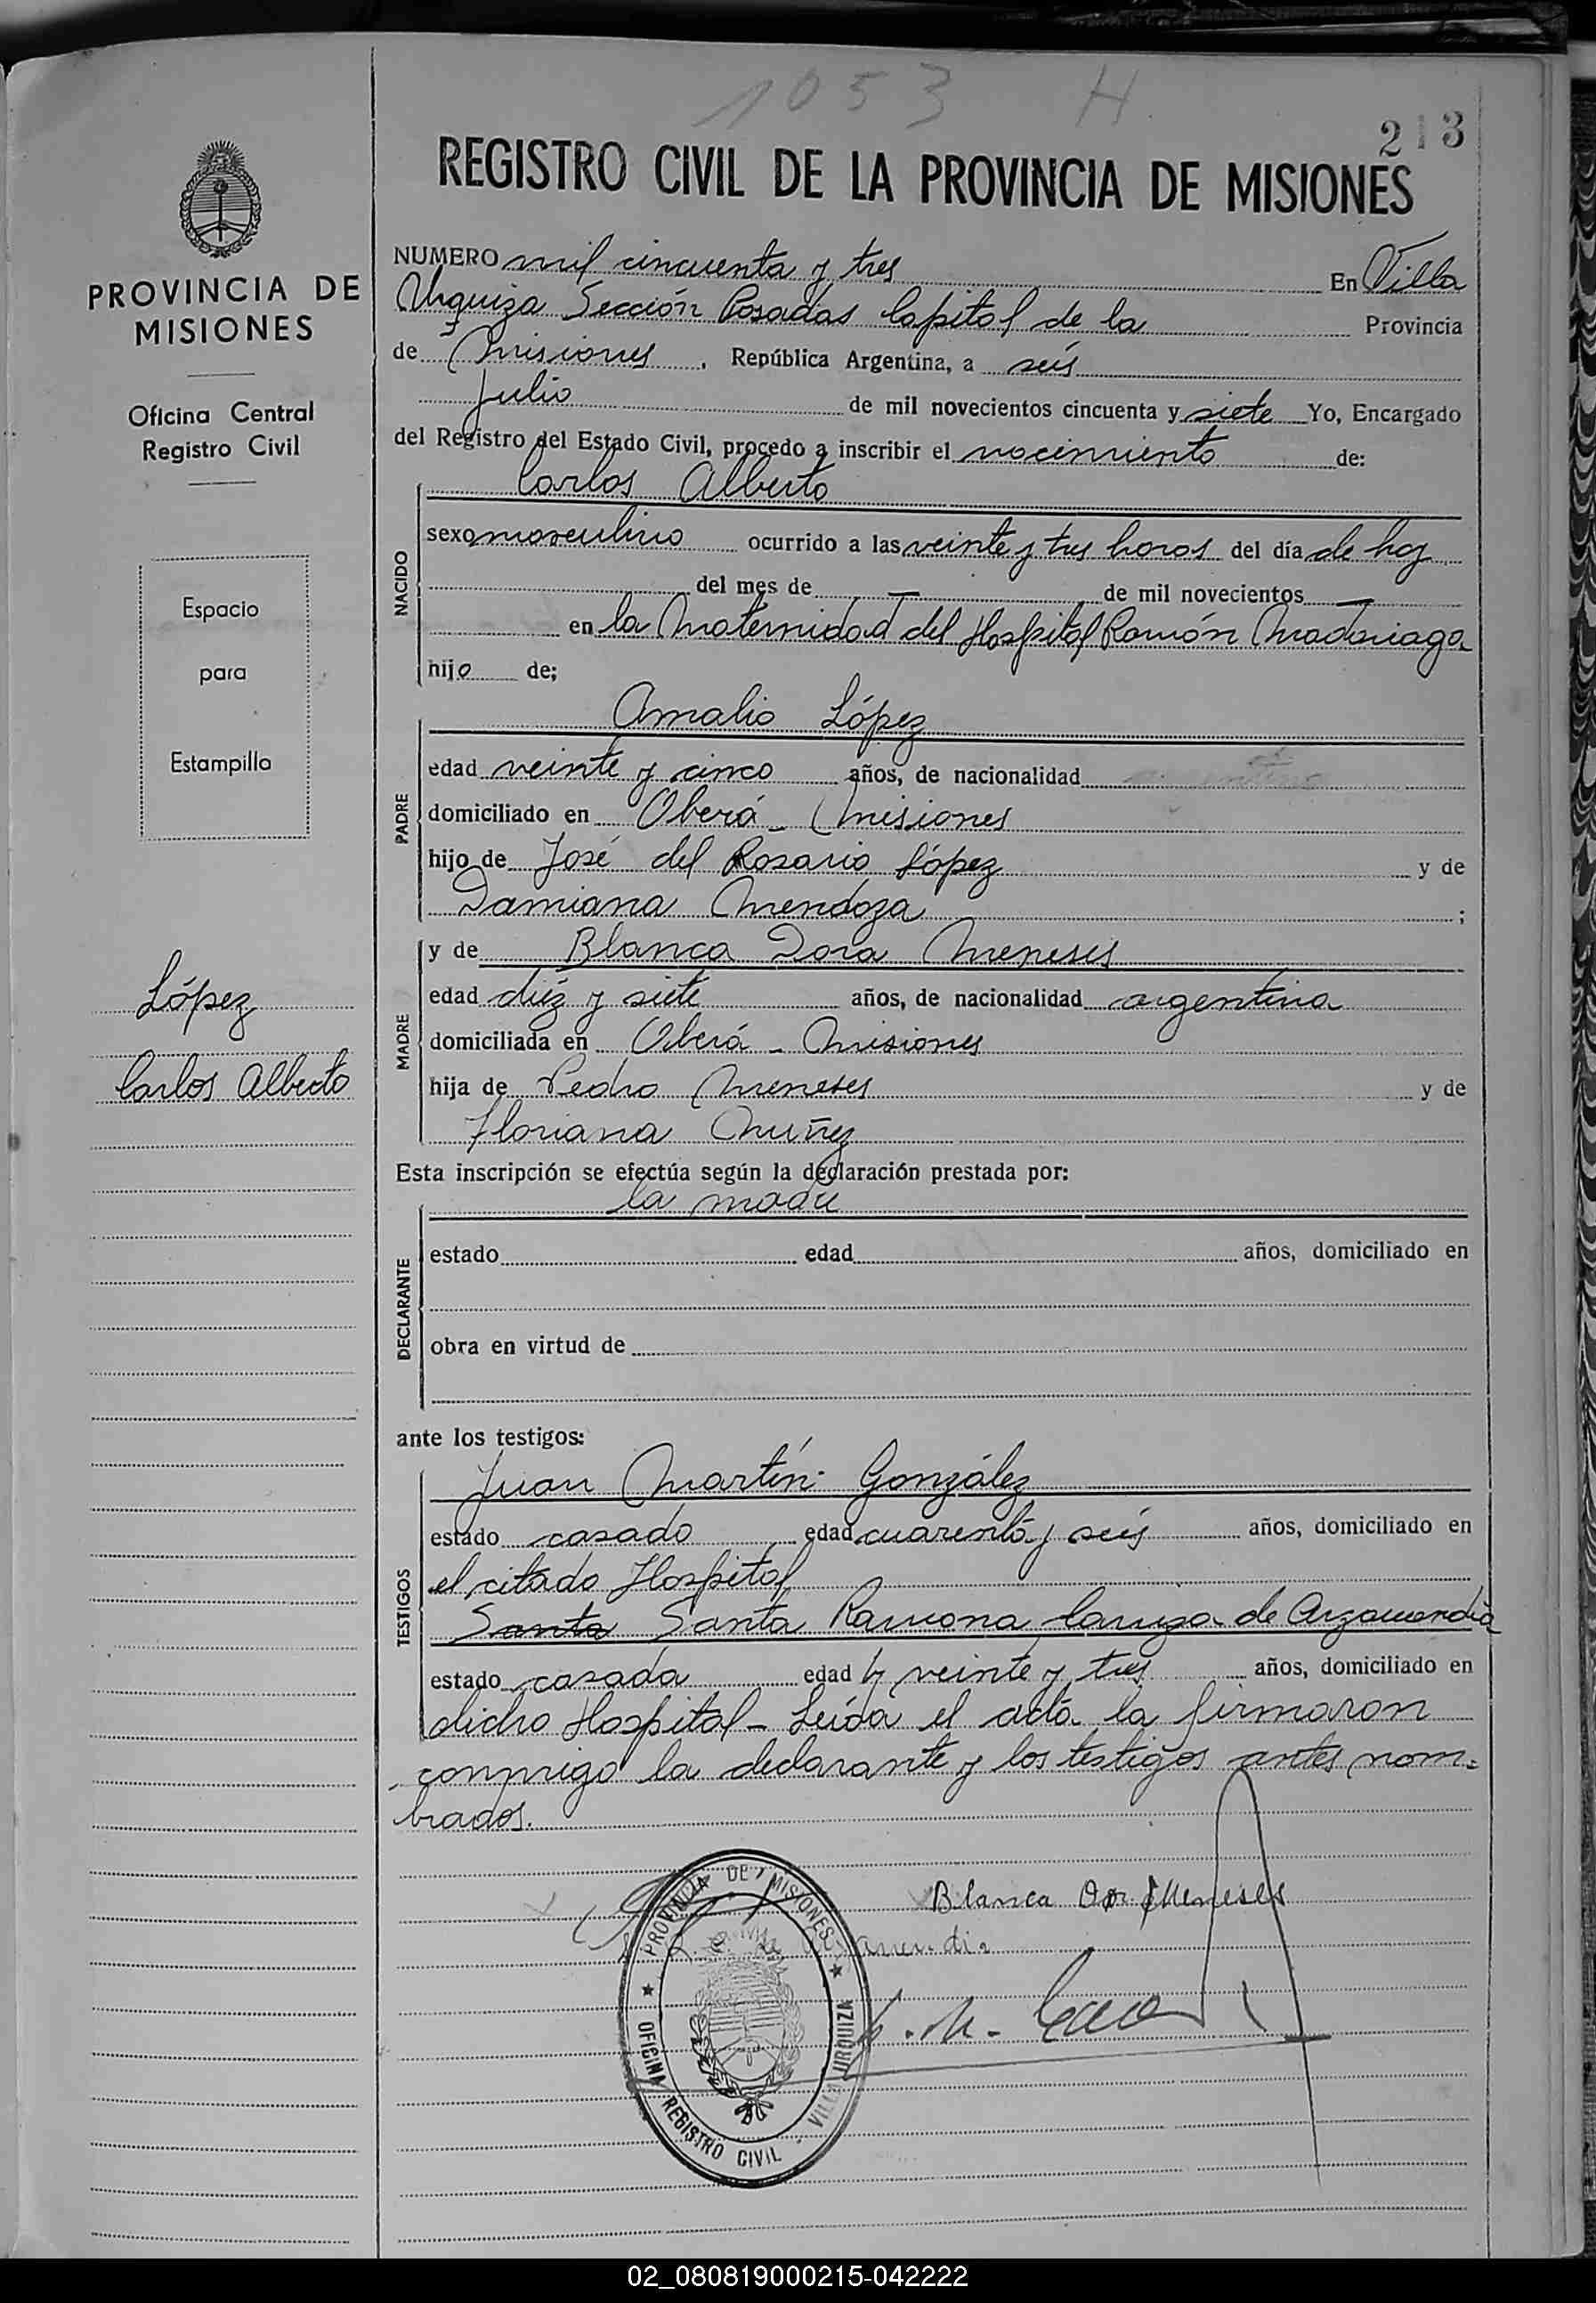 1053 H
213
REGISTRO CIVIL DE LA PROVINCIA DE MISIONES
PROVINCIA DE
MISIONES
Oficina Central
Registro Civil
Espacio
para
Estampilla
López
Carlos Alberto
NUMERO mil cincuenta y tres En Villa
Urquiza Sección Posadas Capital de la Provincia
de Misiones, República Argentina, a seis
Julio de mil novecientos cincuenta y siete Yo, Encargado
del Registro del Estado Civil, procedo a inscribir el nacimiento de:
NACIDO
Carlos Alberto
sexo masculino ocurrido a las veinte y tres horas del día de hoy
del mes de — de mil novecientos —
en la Maternidad del Hospital Ramón Madariaga
hijo de;
PADRE
Amalio López
edad veinte y cinco años, de nacionalidad argentina
domiciliado en Oberá - Misiones
hijo de José del Rosario López y de
Damiana Mendoza ;
MADRE
y de Blanca Dora Meneses
edad diéz y siete años, de nacionalidad argentina
domiciliada en Oberá - Misiones
hija de Pedro Meneses y de
Floriana Muñez
Esta inscripción se efectúa según la declaración prestada por:
DECLARANTE
la madre
estado edad años, domiciliado en
obra en virtud de
ante los testigos:
TESTIGOS
Juan Martín González
estado casado edad cuarenta y seis años, domiciliado en
el citado Hospital
Santa Santa Ramona de Arzamendia
estado casada edad veinte y tres años, domiciliado en
dicho Hospital - Leída el acta la firmaron
conmigo la declarante y los testigos antes nom-
brados.
Blanca Meneses
PROVINCIA DE MISIONES
OFICINA REGISTRO CIVIL - VILLA URQUIZA
02_080819000215-042222